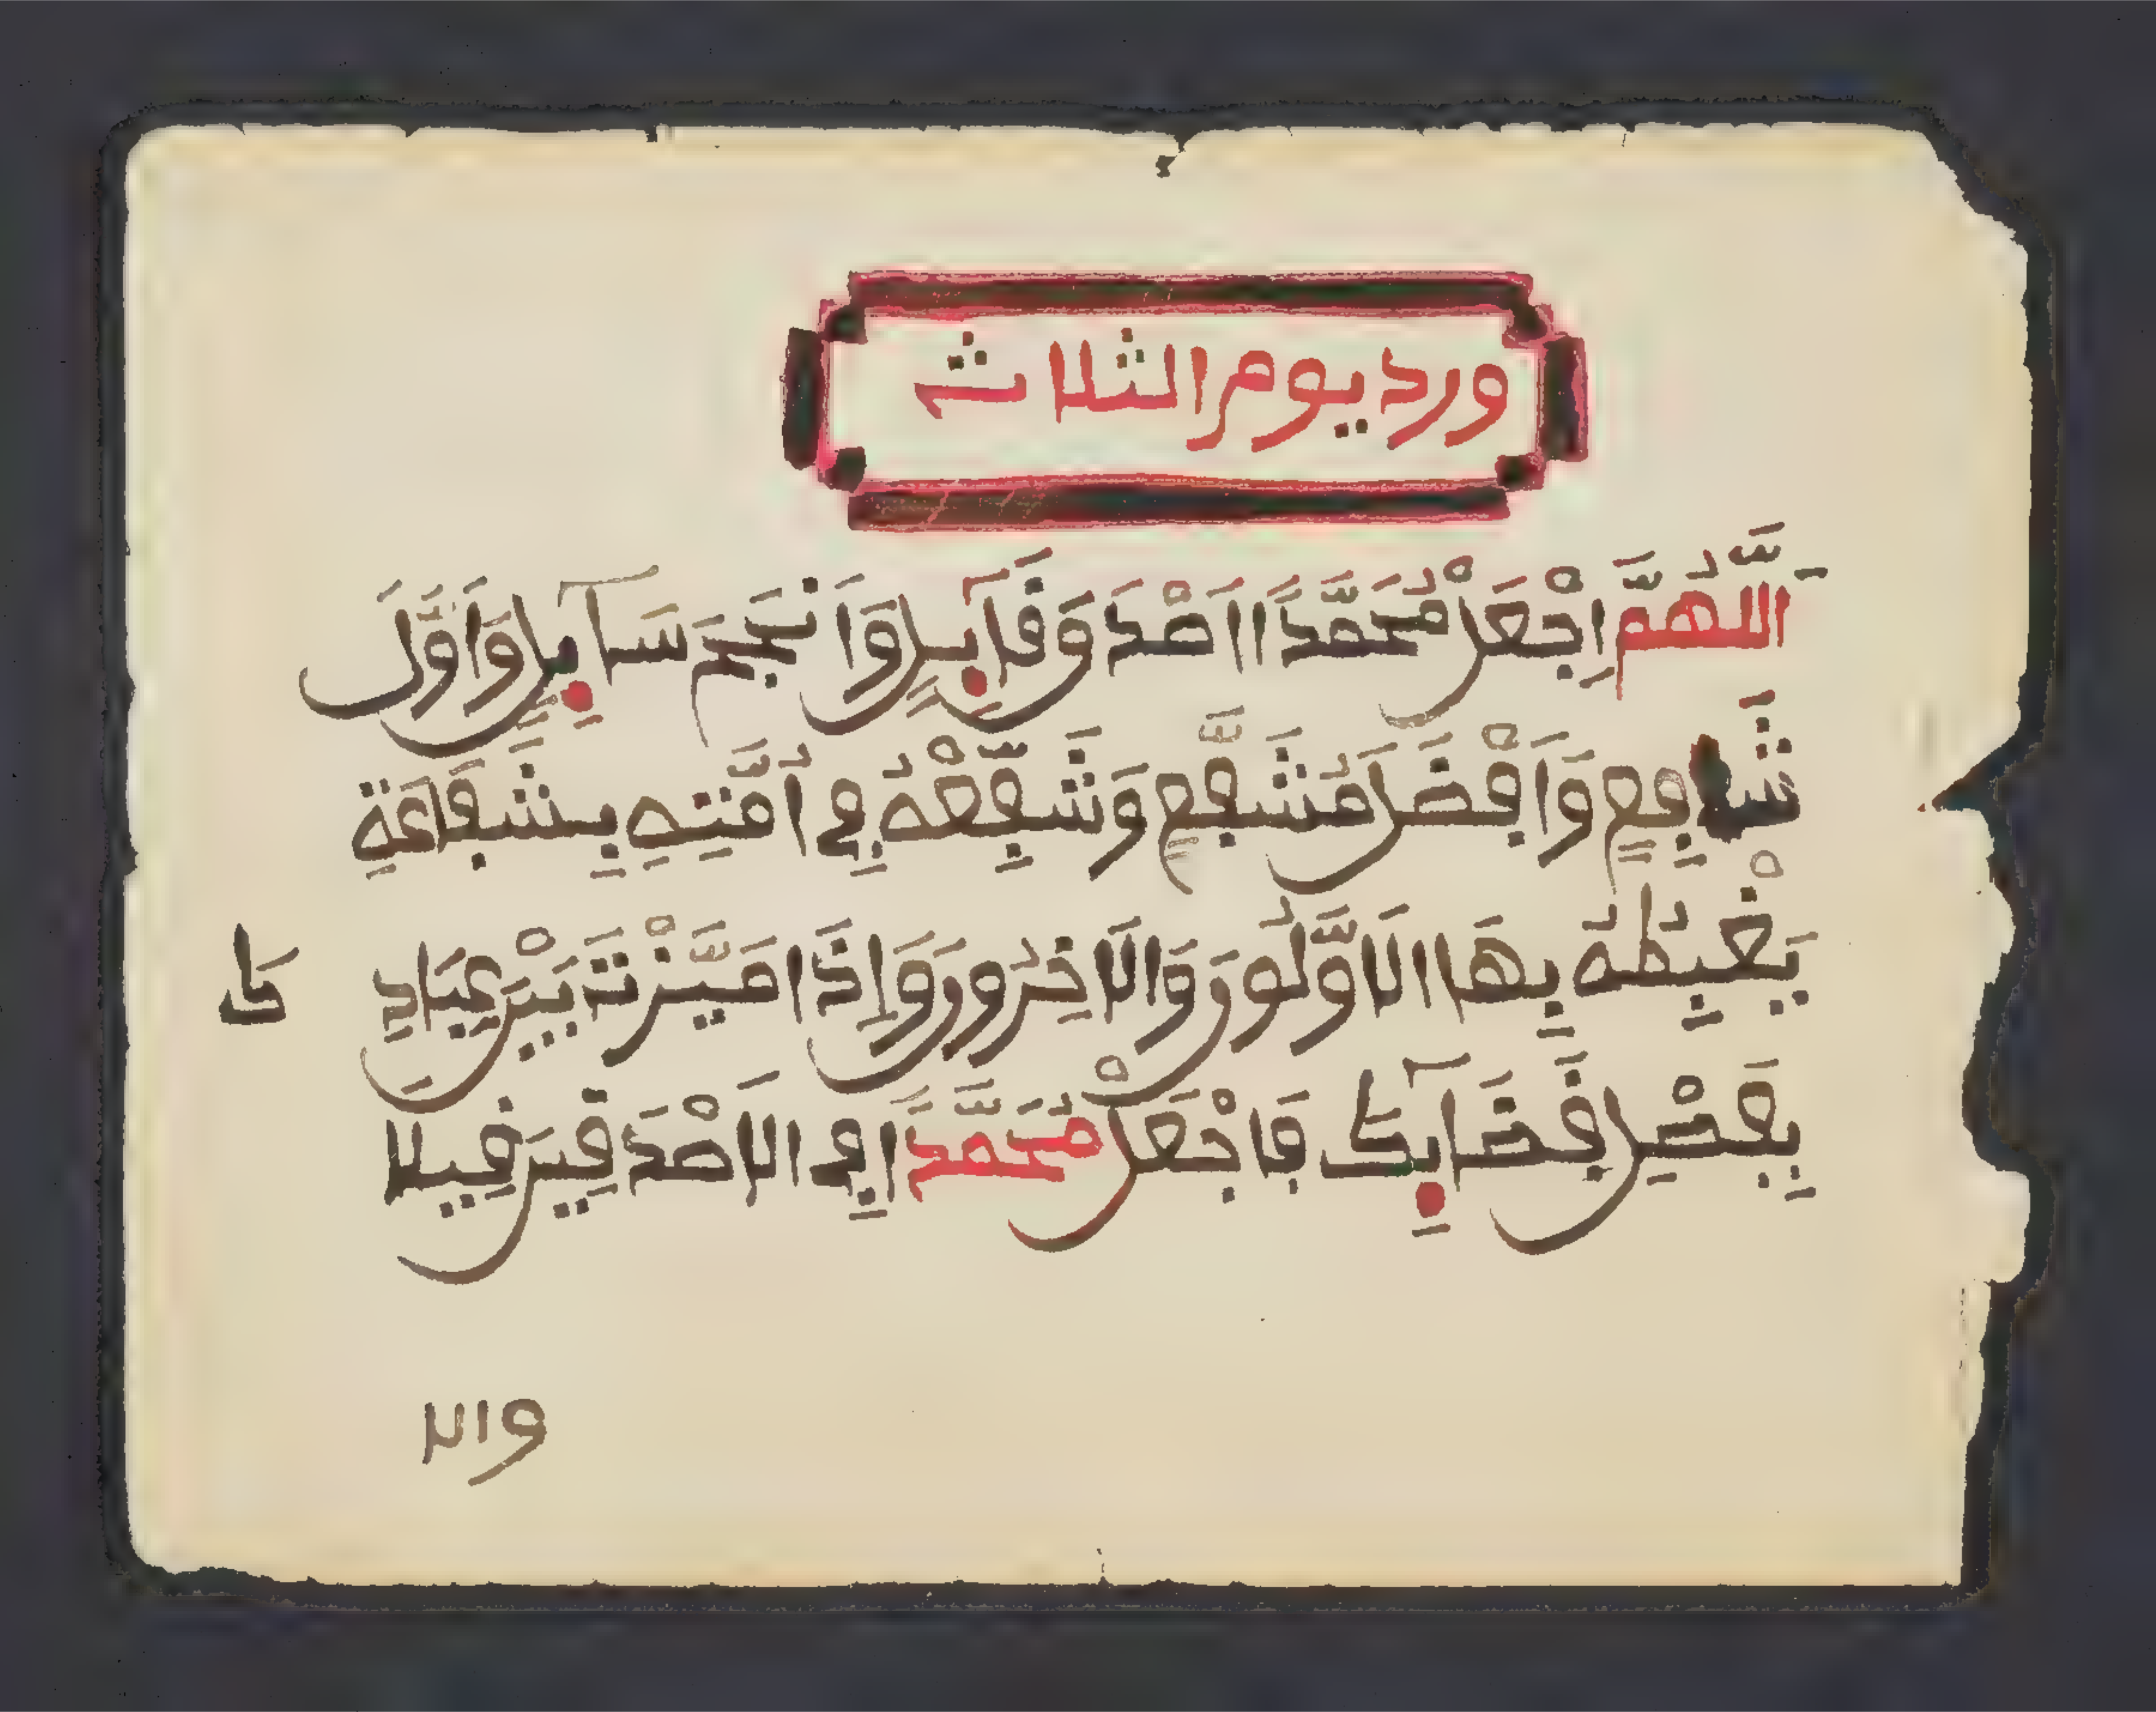 ورد يوم الثلاث
اَللَّهُمَّ اِجْعَلْ مُحَمَّدًا اَصْدَقَ قَآئِلٍ وَاَنْجَحَ سَآئِلٍ وَاَوَّلَ
شَافِعٍ وَاَفْضَلَ مُشَفَّعٍ وَشَفِّعْهُ فِي اُمَّتِهِ بِشَفَاعَةٍ
يَغْبِطُهُ بِهَا الَاوَّلُونَ وَالَاخِرُونَ وَإِذَا مَيَّزْتَ بَيْنَ عِبَادِ
كَ
بِفَصْلِ قَضَآئِكَ فَاجْعَلْ مُحَمَّدًا فِي الَاصْدَقِينَ قِيلا
وال